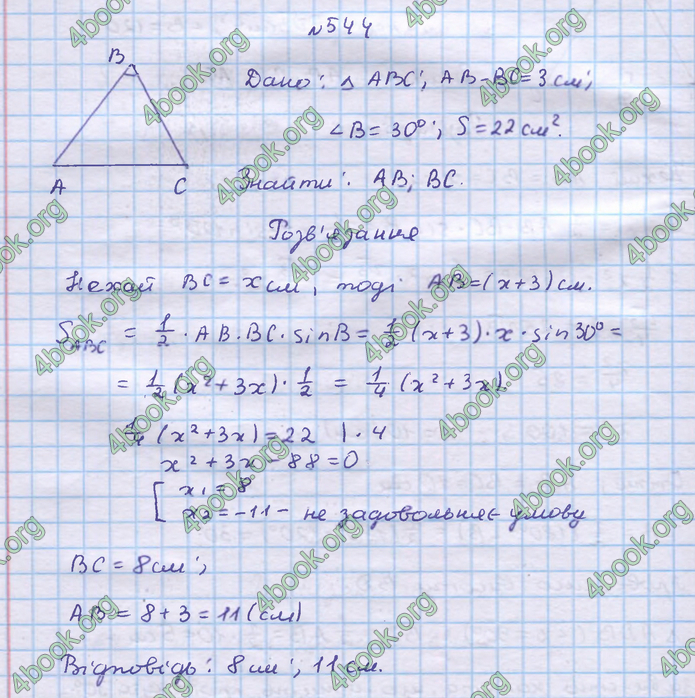 №544
B
Дано: △ ABC; AB-BC=3см;
∠B=30°; S=22см².
A C
Знайти: AB; BC.
Розв'язання
Нехай BC=xсм, тоді AB=(x+3)см.
S_ABC = 1/2 · AB·BC·sinB = 1/2 (x+3)·x·sin30° =
= 1/2 (x²+3x)·1/2 = 1/4 (x²+3x).
1/4 (x²+3x)=22 |·4
x²+3x-88=0
[ x₁=8
x₂=-11- не задовольняє умову
BC=8см;
AB=8+3=11(см)
Відповідь: 8см; 11см.
4book.org